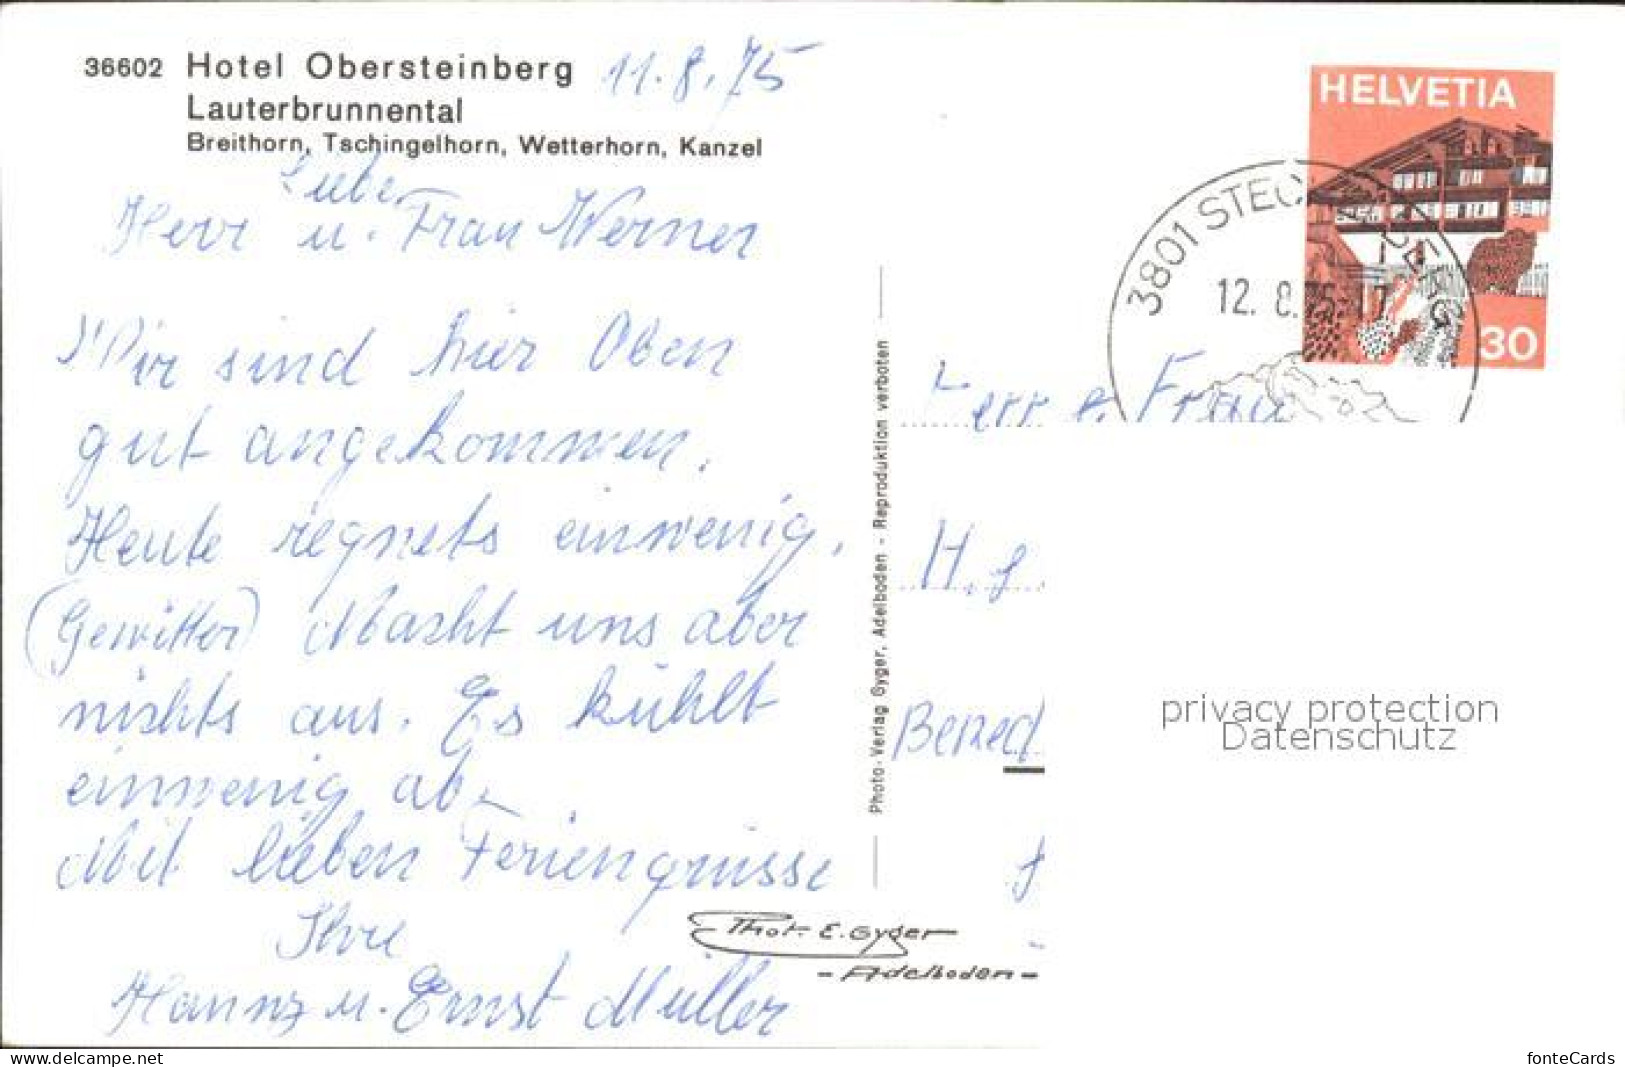 36602 Hotel Obersteinberg 11.8.75
Lauterbrunnental
Breithorn, Tschingelhorn, Wetterhorn, Kanzel
Liebe
Herr u. Frau Werner
Wir sind hier Oben
gut angekommen.
Heute regnets einwenig.
(Gewitter) Macht uns aber
nichts aus. Es kühlt
einwenig ab.
Mit lieben Feriengrüsse
Ihre
u. Ernst Müller
Photo-Verlag Gyger, Adelboden - Reproduktion verboten
Phot. E. Gyger
- Adelboden -
HELVETIA
30
3801 STEC
12. 8. 75-17
Herr u. Frau
H.
Bened
privacy protection
Datenschutz
https://www.delcampe.net
fonteCards